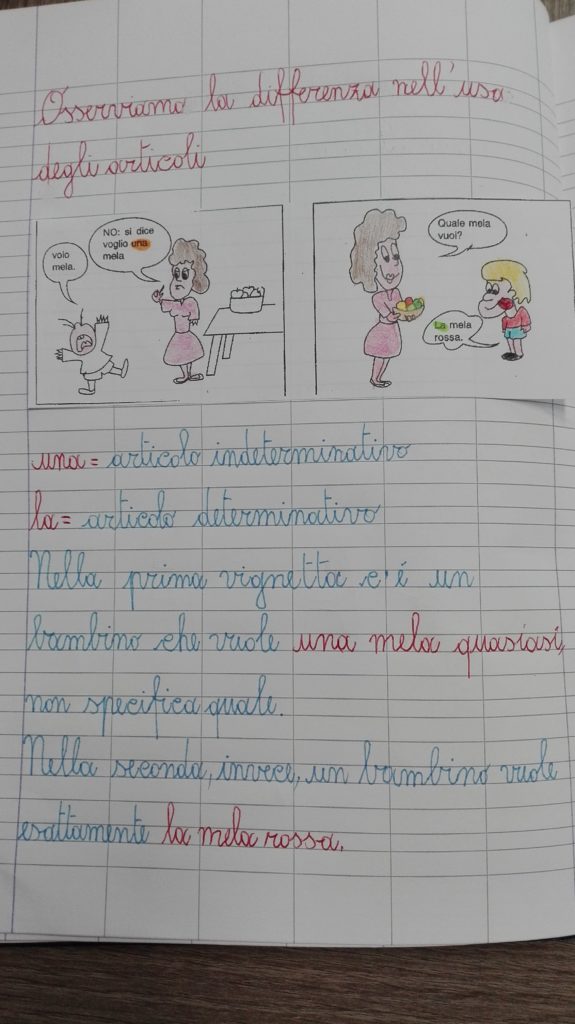 Osserviamo la differenza nell'uso
degli articoli
voio
mela.
NO: si dice
voglio una
mela
Quale mela
vuoi?
La mela
rossa.
una = articolo indeterminativo
la = articolo determinativo
Nella prima vignetta c'é un
bambino che vuole una mela quasiasi,
non specifica quale.
Nella seconda, invece, un bambino vuole
esattamente la mela rossa.